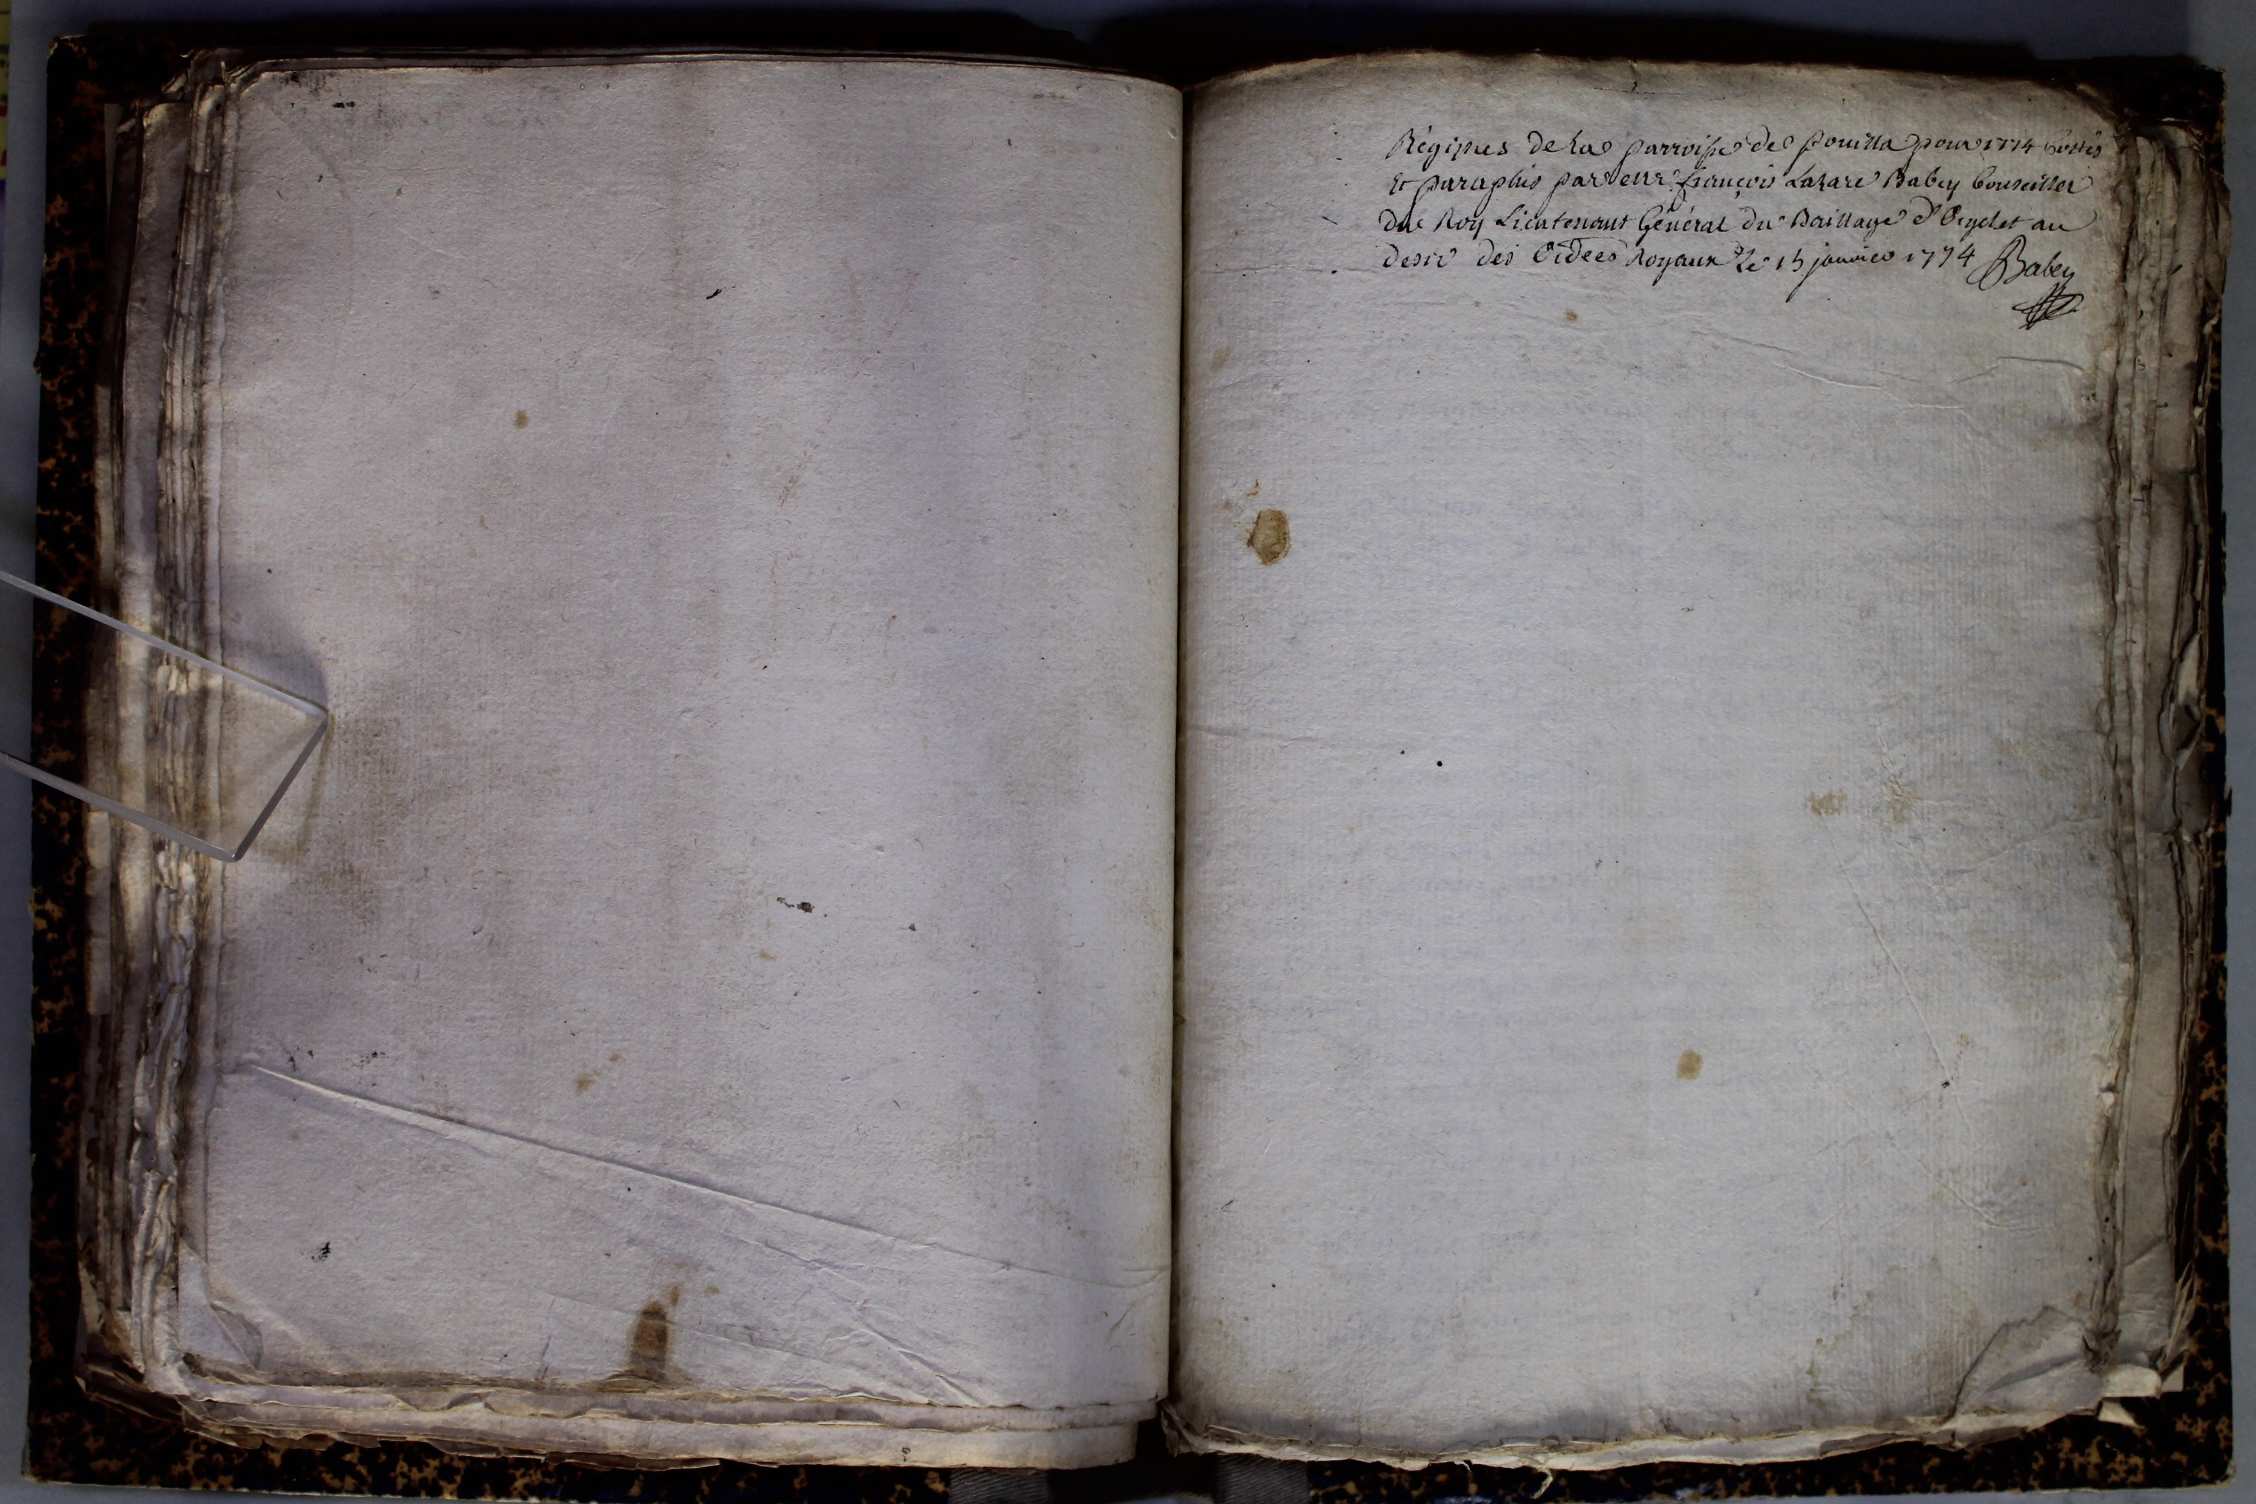 Régistres de la parroisse de pouilla pour 1774 Cottés
Et paraphés par Nous françois Lazare Babey Conseiller
du Roy Lieutenant Général du Baillage d'Orgelet au
desir des Ordces Royaux le 15 janvier 1774 Babey